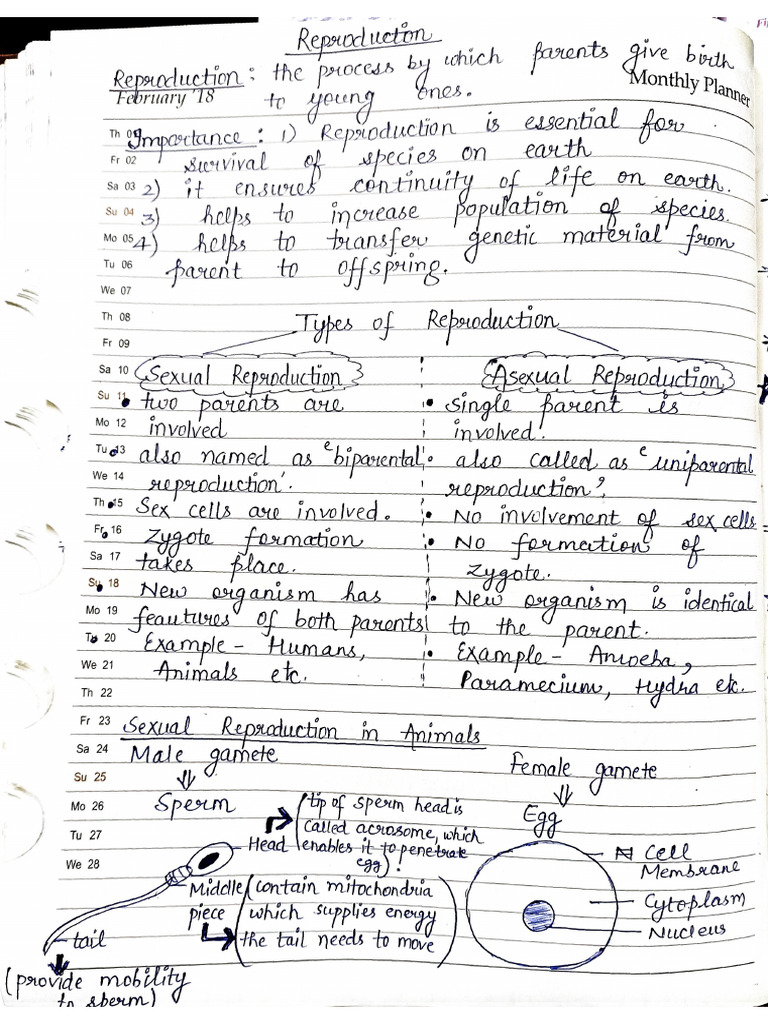 Reproduction
Reproduction : the process by which parents give birth
Monthly Planner
February '18
to young ones.
Th 01
Importance : 1) Reproduction is essential for
Fr 02
survival of species on earth
Sa 03
2) it ensures continuity of life on earth.
Su 04
3) helps to increase population of species.
Mo 05
4) helps to transfer genetic material from
Tu 06
parent to offspring.
We 07
Th 08
Types of Reproduction
Fr 09
Sa 10
Sexual Reproduction
Asexual Reproduction
Su 11
Mo 12
Tu 13
We 14
Th 15
Fr 16
Sa 17
Su 18
Mo 19
Tu 20
We 21
Th 22
• two parents are
involved
• also named as 'biparental
reproduction'.
• Sex cells are involved.
• Zygote formation
takes place.
• New organism has
feautures of both parents
• Example - Humans,
Animals etc.
• single parent is
involved.
• also called as 'uniparental
reproduction'.
• No involvement of sex cells
• No formation of
zygote.
• New organism is identical
to the parent.
• Example - Amoeba,
Paramecium, Hydra etc.
Fr 23
Sexual Reproduction in Animals
Sa 24
Male gamete
Female gamete
Su 25
Mo 26
Sperm
Egg
Tu 27
We 28
Head
(tip of sperm head is
called acrosome, which
enables it to penetrate
egg)
Middle
piece
(contain mitochondria
which supplies energy
the tail needs to move)
tail
(provide mobility
to sperm)
Cell
Membrane
Cytoplasm
Nucleus